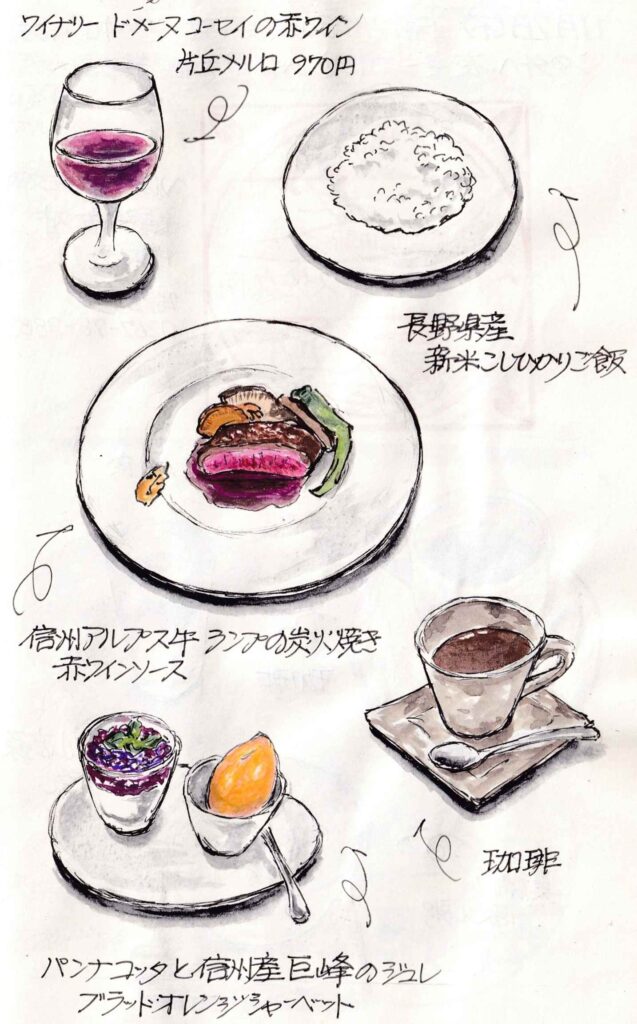 ワイナリー ドメーヌコーセイの赤ワイン
片丘メルロ 970円
長野県産
新米こしひかりご飯
信州アルプス牛 ランプの炭火焼き
赤ワインソース
珈琲
パンナコッタと信州産巨峰のジュレ
ブラッドオレンジシャーベット